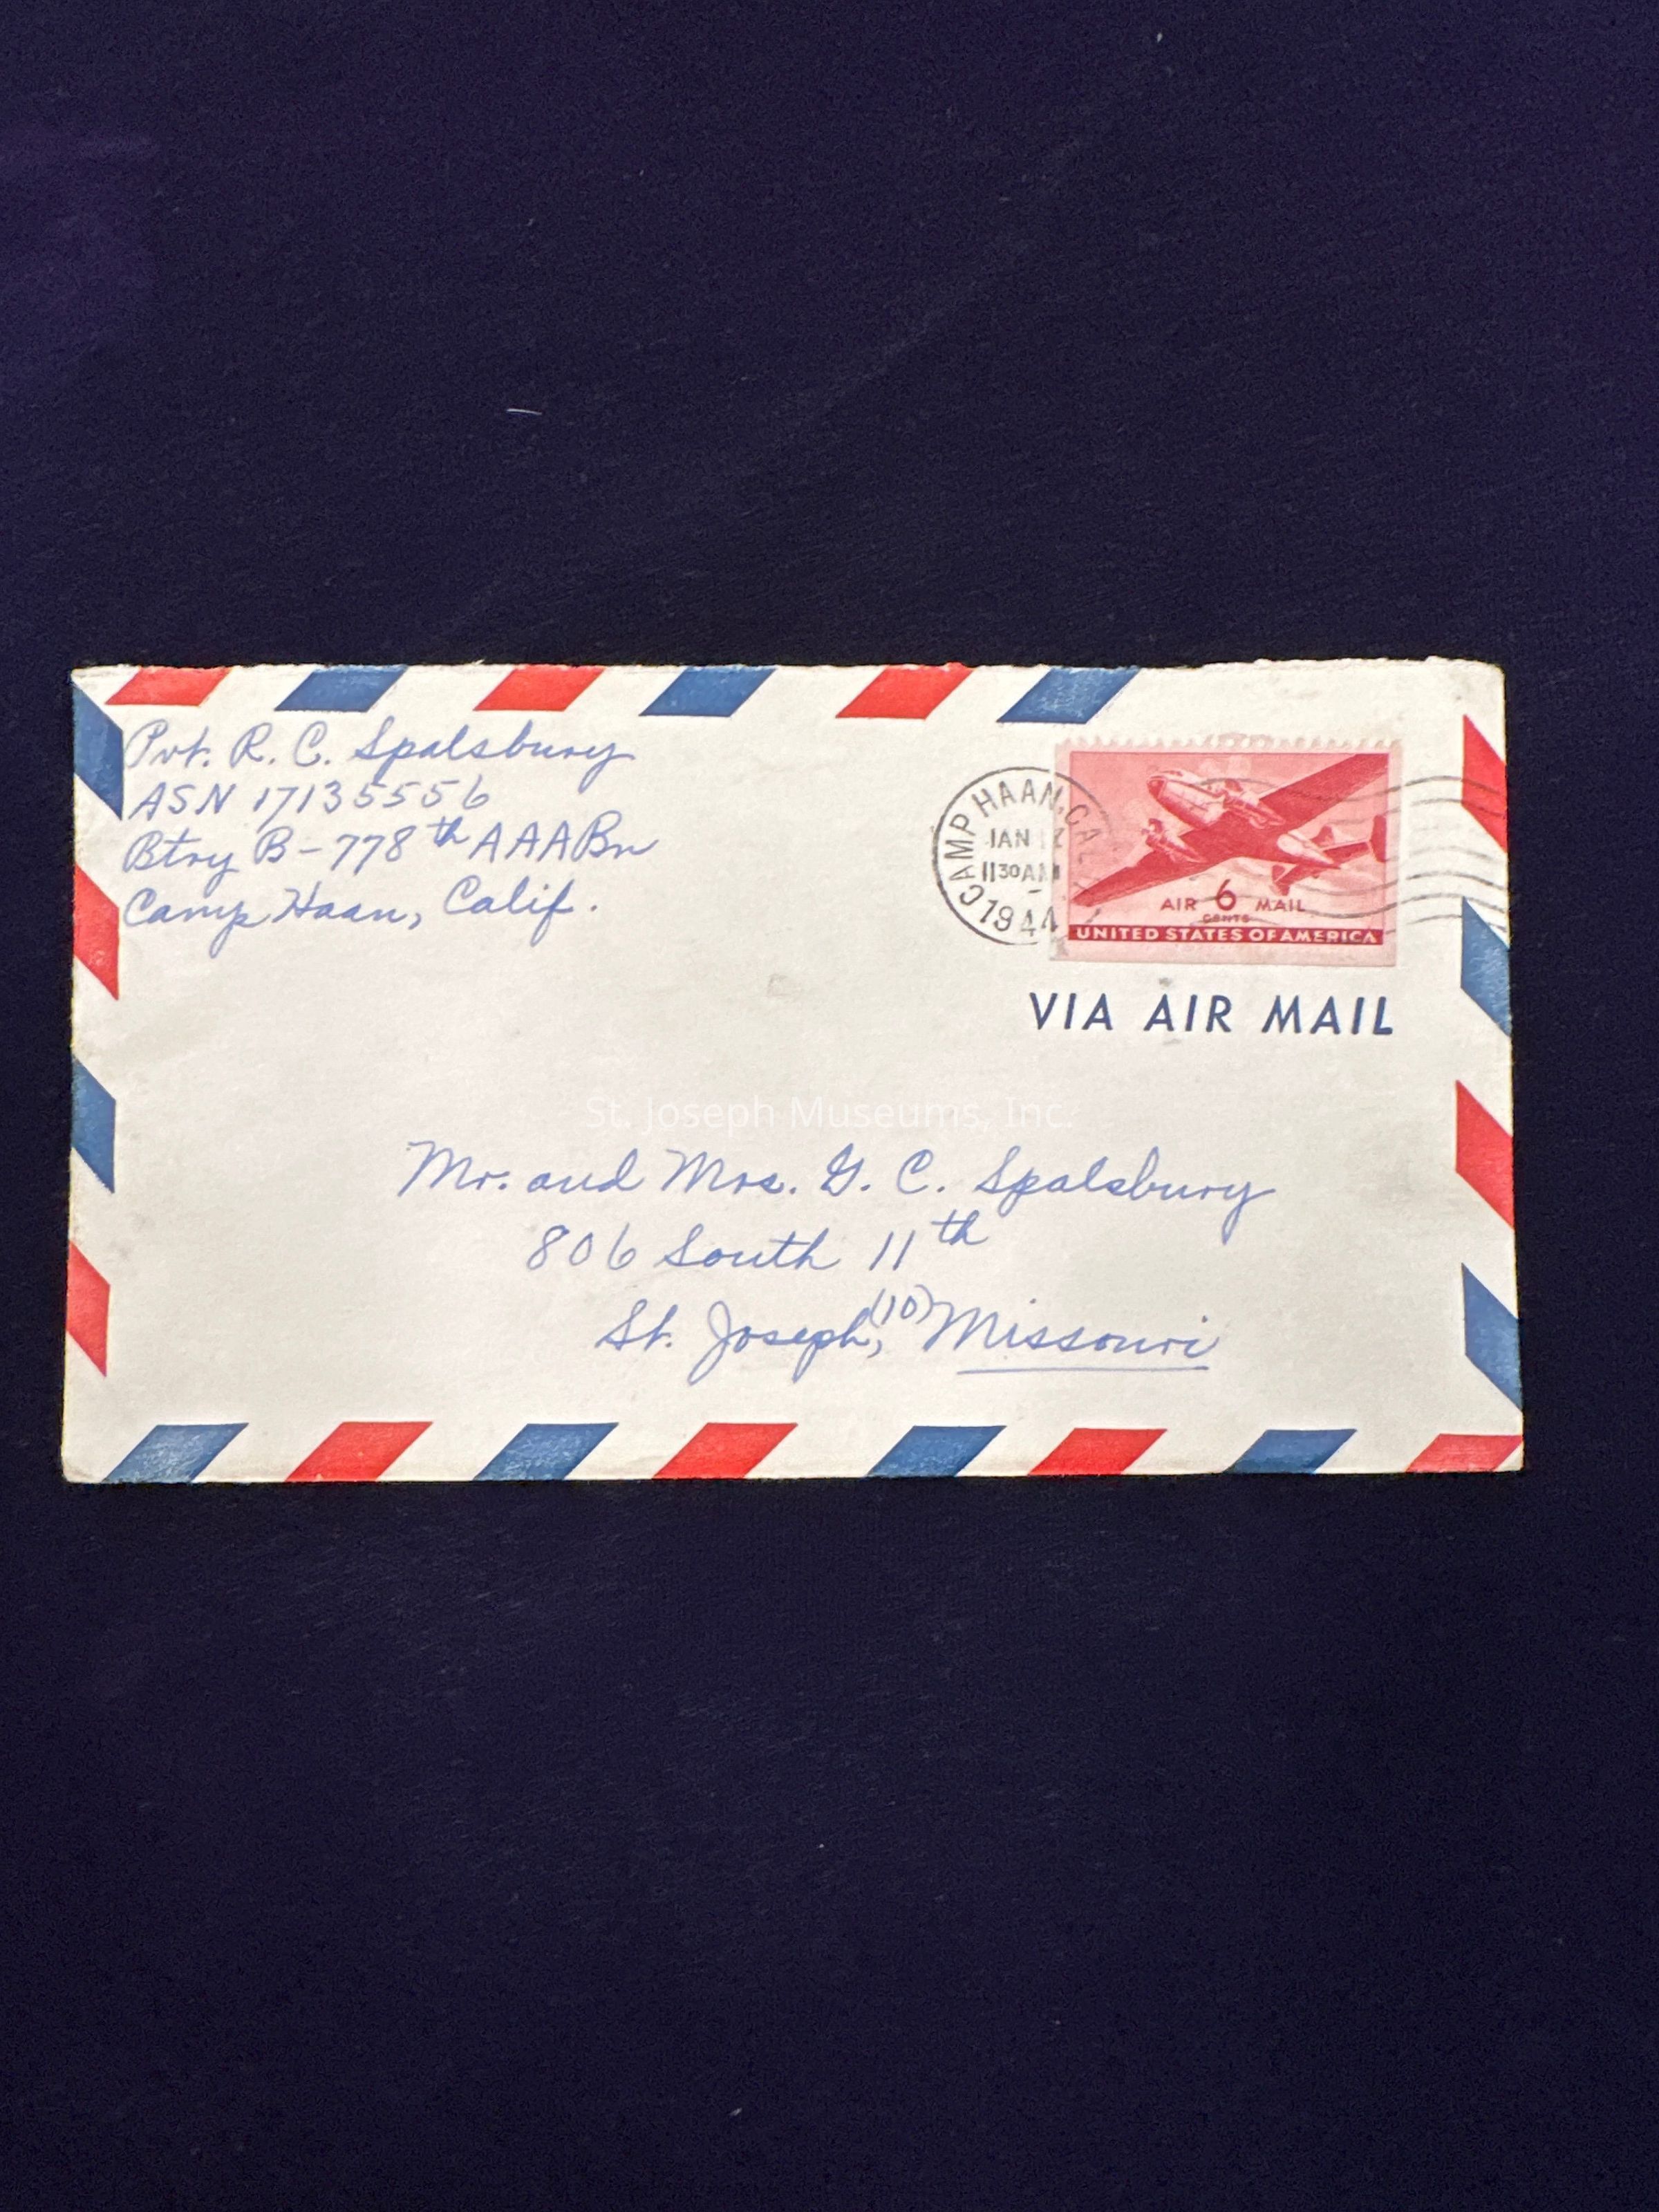 Pvt. R. C. Spalsbury
ASN 17135556
Btry B-778th AAA Bn
Camp Haan, Calif.
CAMP HAAN, CAL
JAN 12
1130 AM
1944
AIR 6 MAIL
CENTS
UNITED STATES OF AMERICA
VIA AIR MAIL
St. Joseph Museums, Inc.
Mr. and Mrs. G. C. Spalsbury
806 South 11th
St. Joseph, (10) Missouri